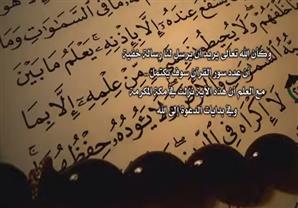 فِي السَّمَوَاتِ وَمَا
يَشْفَعُ عِندَهُ إِلَّا بِإِذْنِهِ يَعْلَمُ مَا بَيْنَ
وكأن الله تعالى يريد أن يرسل لنا رسالة خفية
أن عدد سور القرآن سوف يكتمل
مع العلم أن هذه الآية نزلت في مكة المكرمة
وفي بدايات الدعوة إلى الله
عِلْمِهِ إِلَّا بِمَا
يَئُودُهُ حِفْظُهُمَا
لَا إِكْرَاهَ فِي